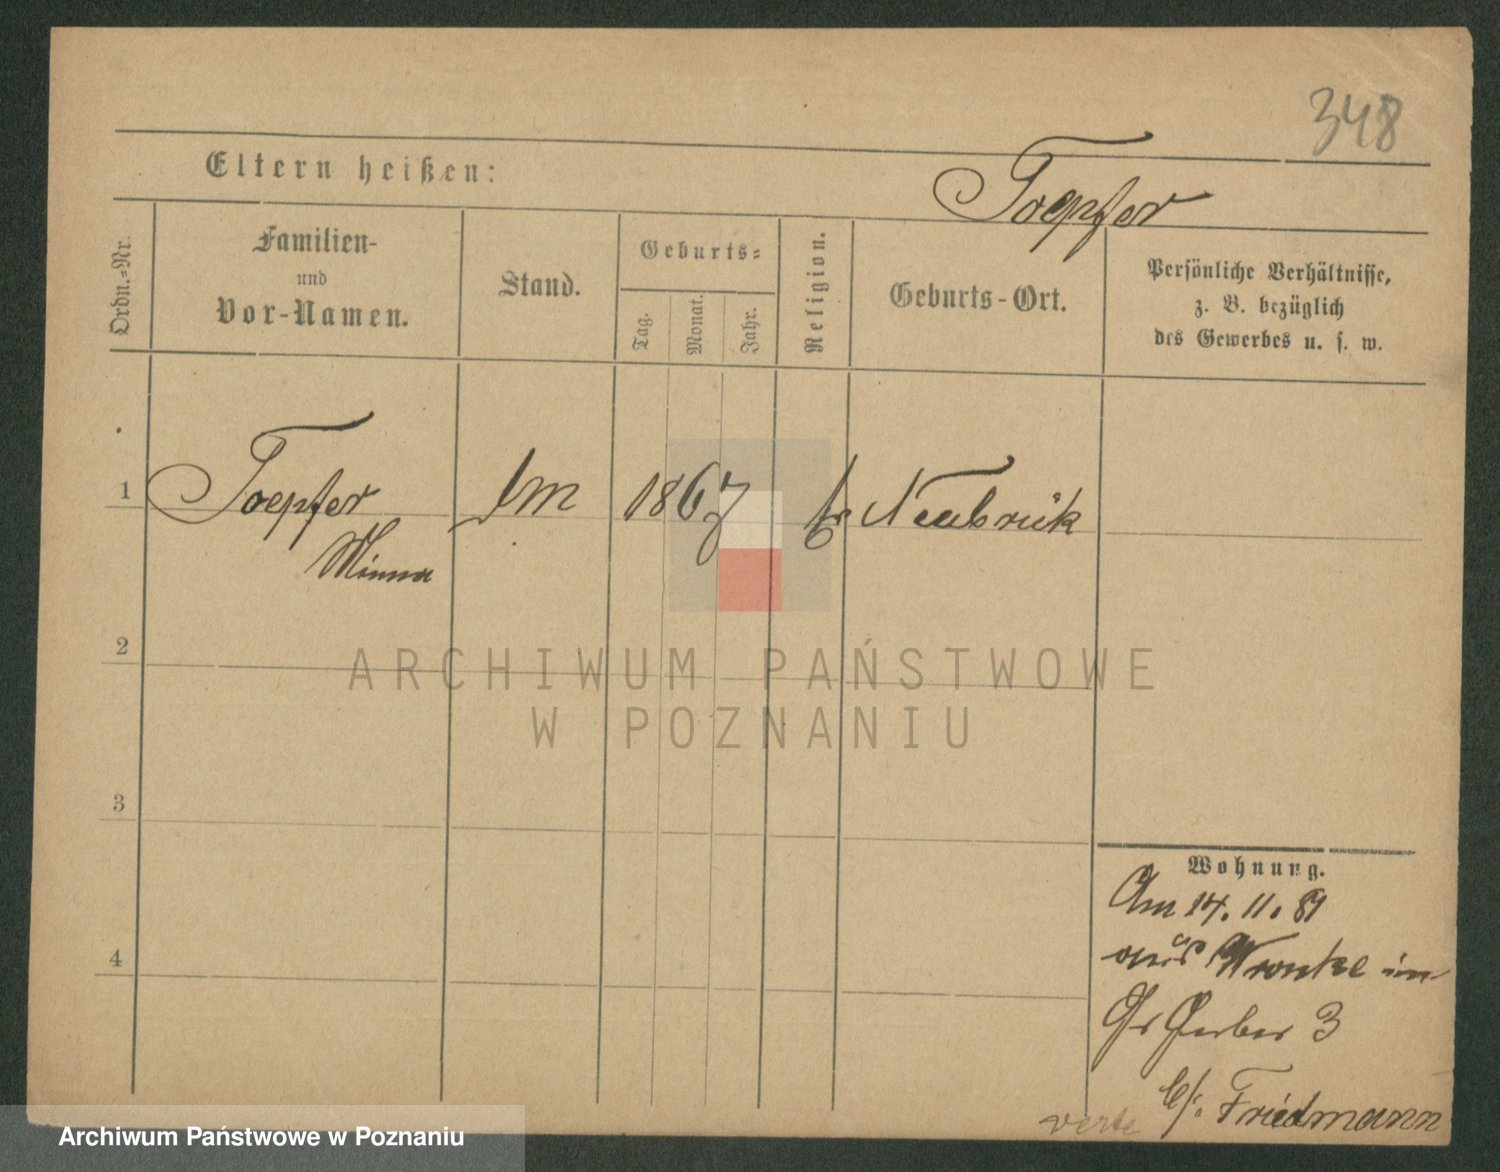 348
Eltern heißen:
Toepfer
Ordn.-Nr.
Familien-
und
Vor-Namen.
Stand.
Geburts-
Tag.
Monat.
Jahr.
Religion.
Geburts-Ort.
Persönliche Verhältnisse,
z. B. bezüglich
des Gewerbes u. s. w.
1
Toepfer
Minna
1867
Neubrück
2
ARCHIWUM PAŃSTWOWE
W POZNANIU
3
4
Wohnung.
Am 14. 11. 89
aus Wronke in
Gr Gerber 3
b/: Friedmann
verte
Archiwum Państwowe w Poznaniu